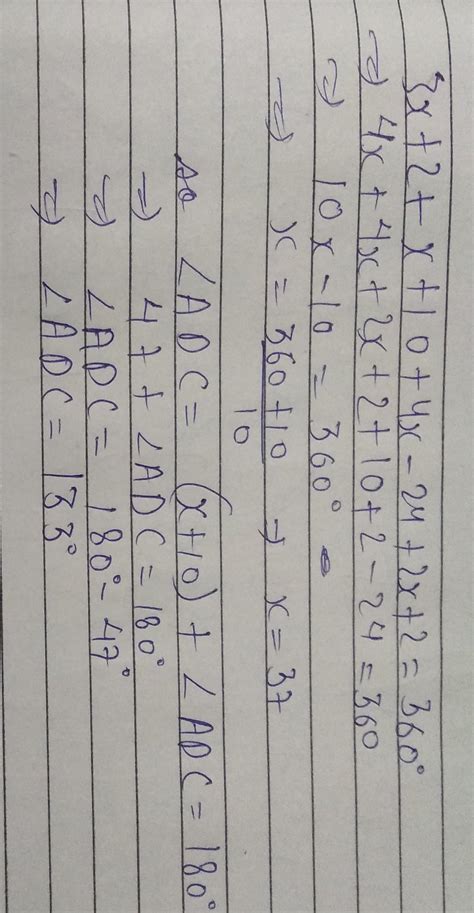 3x + 2 + x + 10 + 4x - 24 + 2x + 2 = 360°
→ 4x + 4x + 2x + 2 + 10 + 2 - 24 = 360
→ 10x - 10 = 360°
→ x = 360 + 10 / 10 → x = 37
∠ADC = (x + 10) + ∠ADC = 180°
→ 47 + ∠ADC = 180°
→ ∠ADC = 180° - 47°
→ ∠ADC = 133°